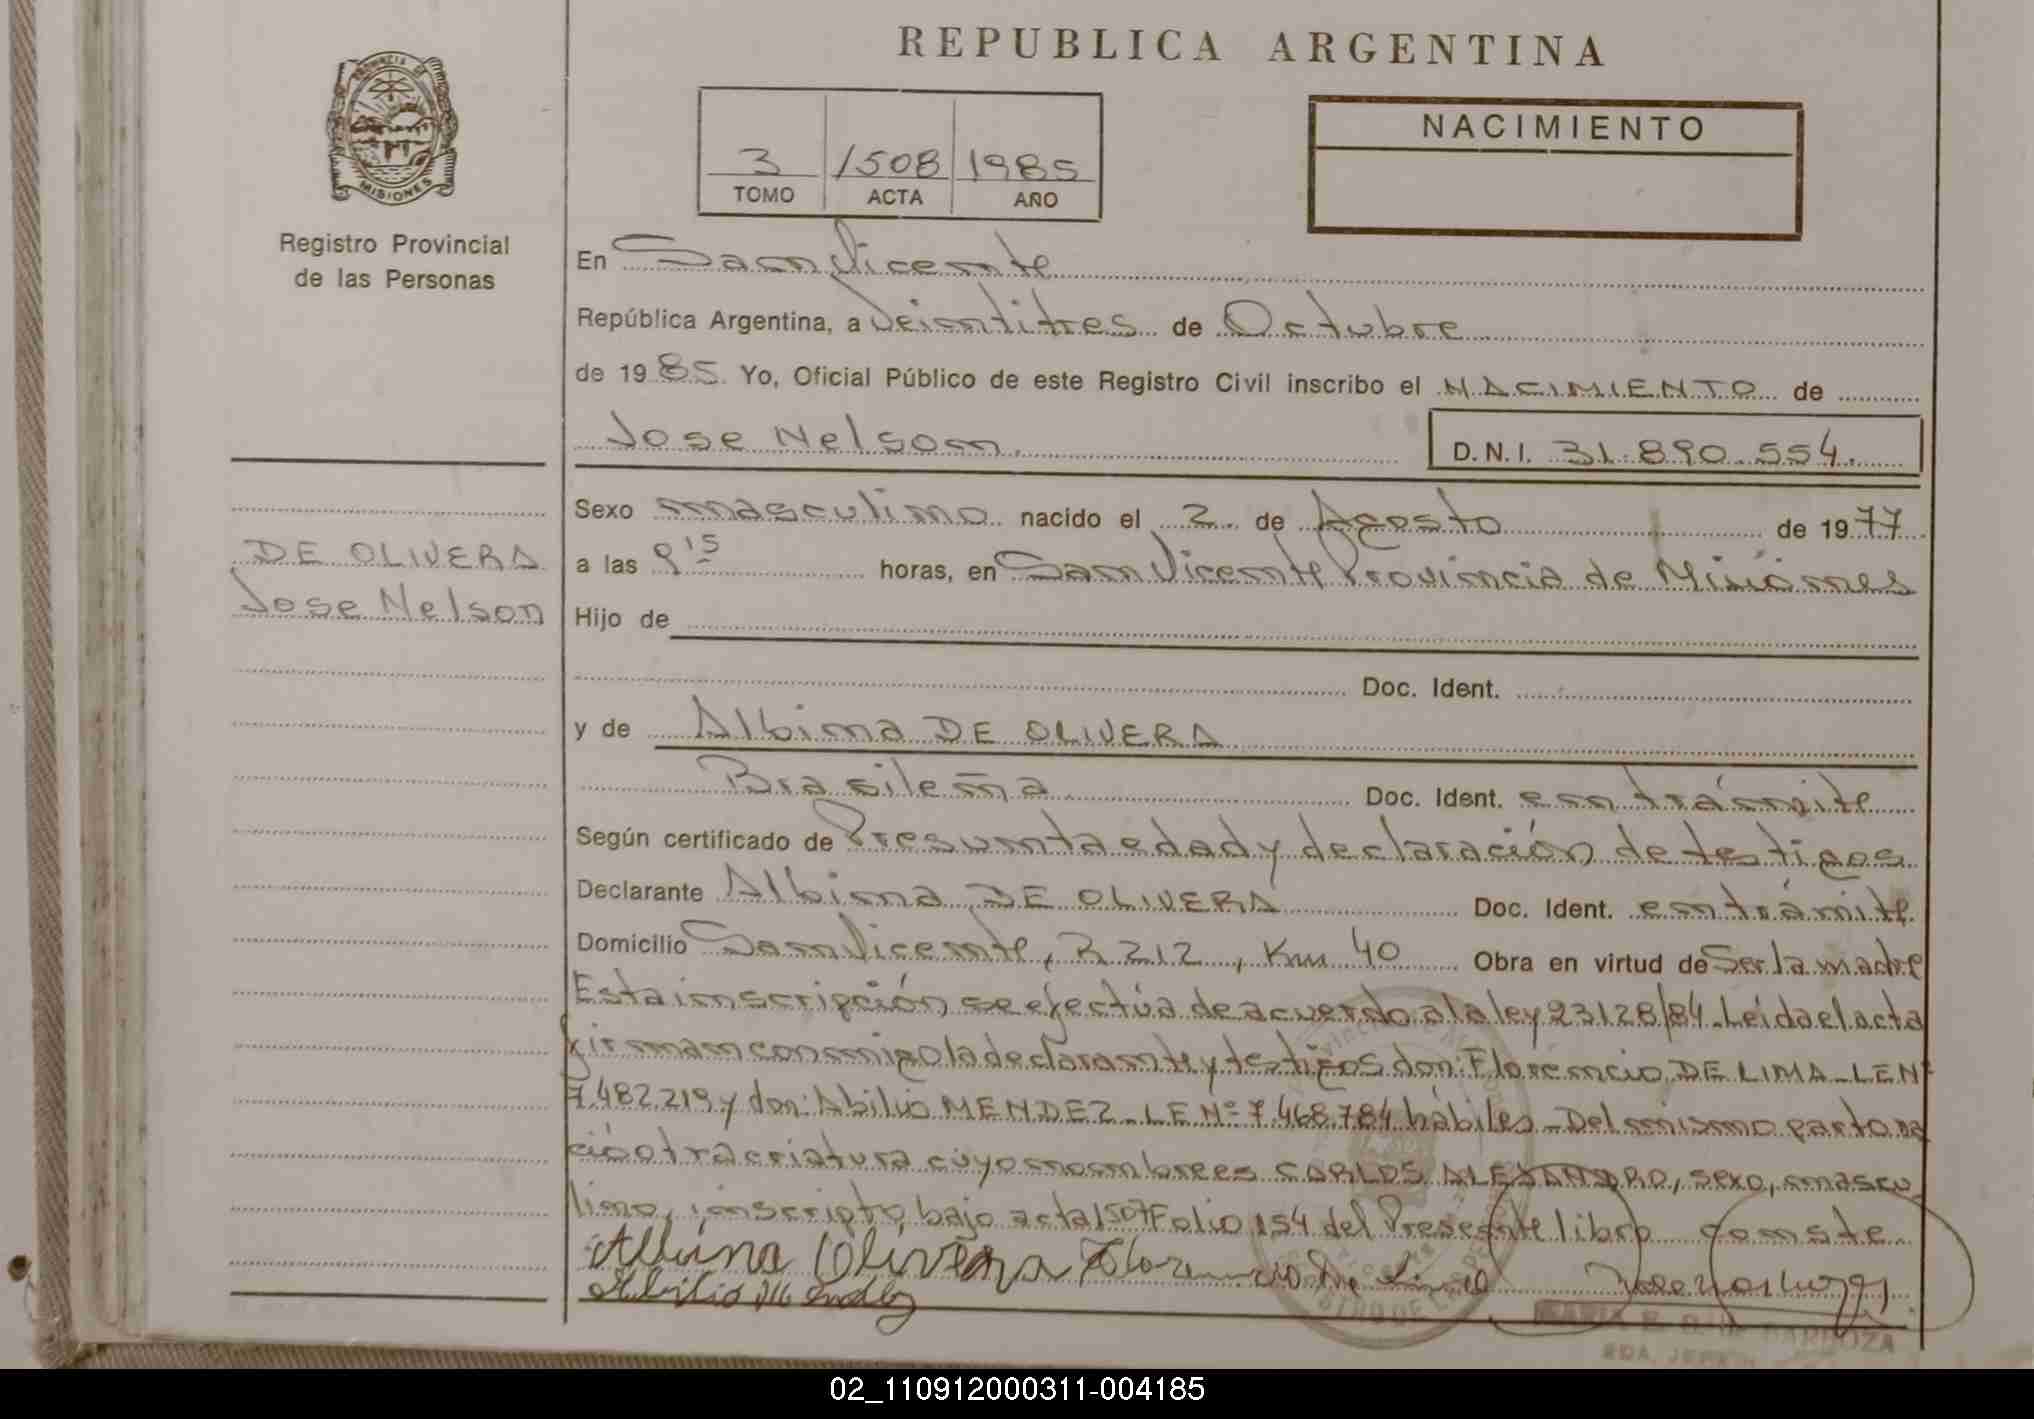 REPUBLICA ARGENTINA
PROVINCIA DE
MISIONES
Registro Provincial
de las Personas
3 1508 1985
TOMO ACTA AÑO
NACIMIENTO
En San Vicente
República Argentina, a Veintitres de Octubre
de 1985. Yo, Oficial Público de este Registro Civil inscribo el NACIMIENTO de
Jose Nelson.
D.N.I. 31.890.554.
DE OLIVERA
Jose Nelson
Sexo masculino nacido el 2 de Agosto de 1977
a las 9 15 horas, en San Vicente Provincia de Misiones
Hijo de
Doc. Ident.
y de Albina DE OLIVERA
Brasileña Doc. Ident. en trámite
Según certificado de Presunta edad y declaración de testigos
Declarante Albina DE OLIVERA Doc. Ident. en trámite
Domicilio San Vicente, R 212, Km 40 Obra en virtud de Ser la madre
Esta inscripción se efectúa de acuerdo a la ley 23128/84. Leída el acta
firman conmigo la declarante y testigos don: Florencio DE LIMA - LE Nº
7.482.219 y don: Abilio MENDEZ - LE Nº 7.468.784 hábiles - Del mismo parto na
ció otra criatura cuyo nombre es CARLOS ALEJANDRO, sexo, mascu
lino, inscripto bajo acta 1507 Folio 154 del Presente libro conste
Albina Olivera Florencio De Lima
Abilio Mendez
02_110912000311-004185